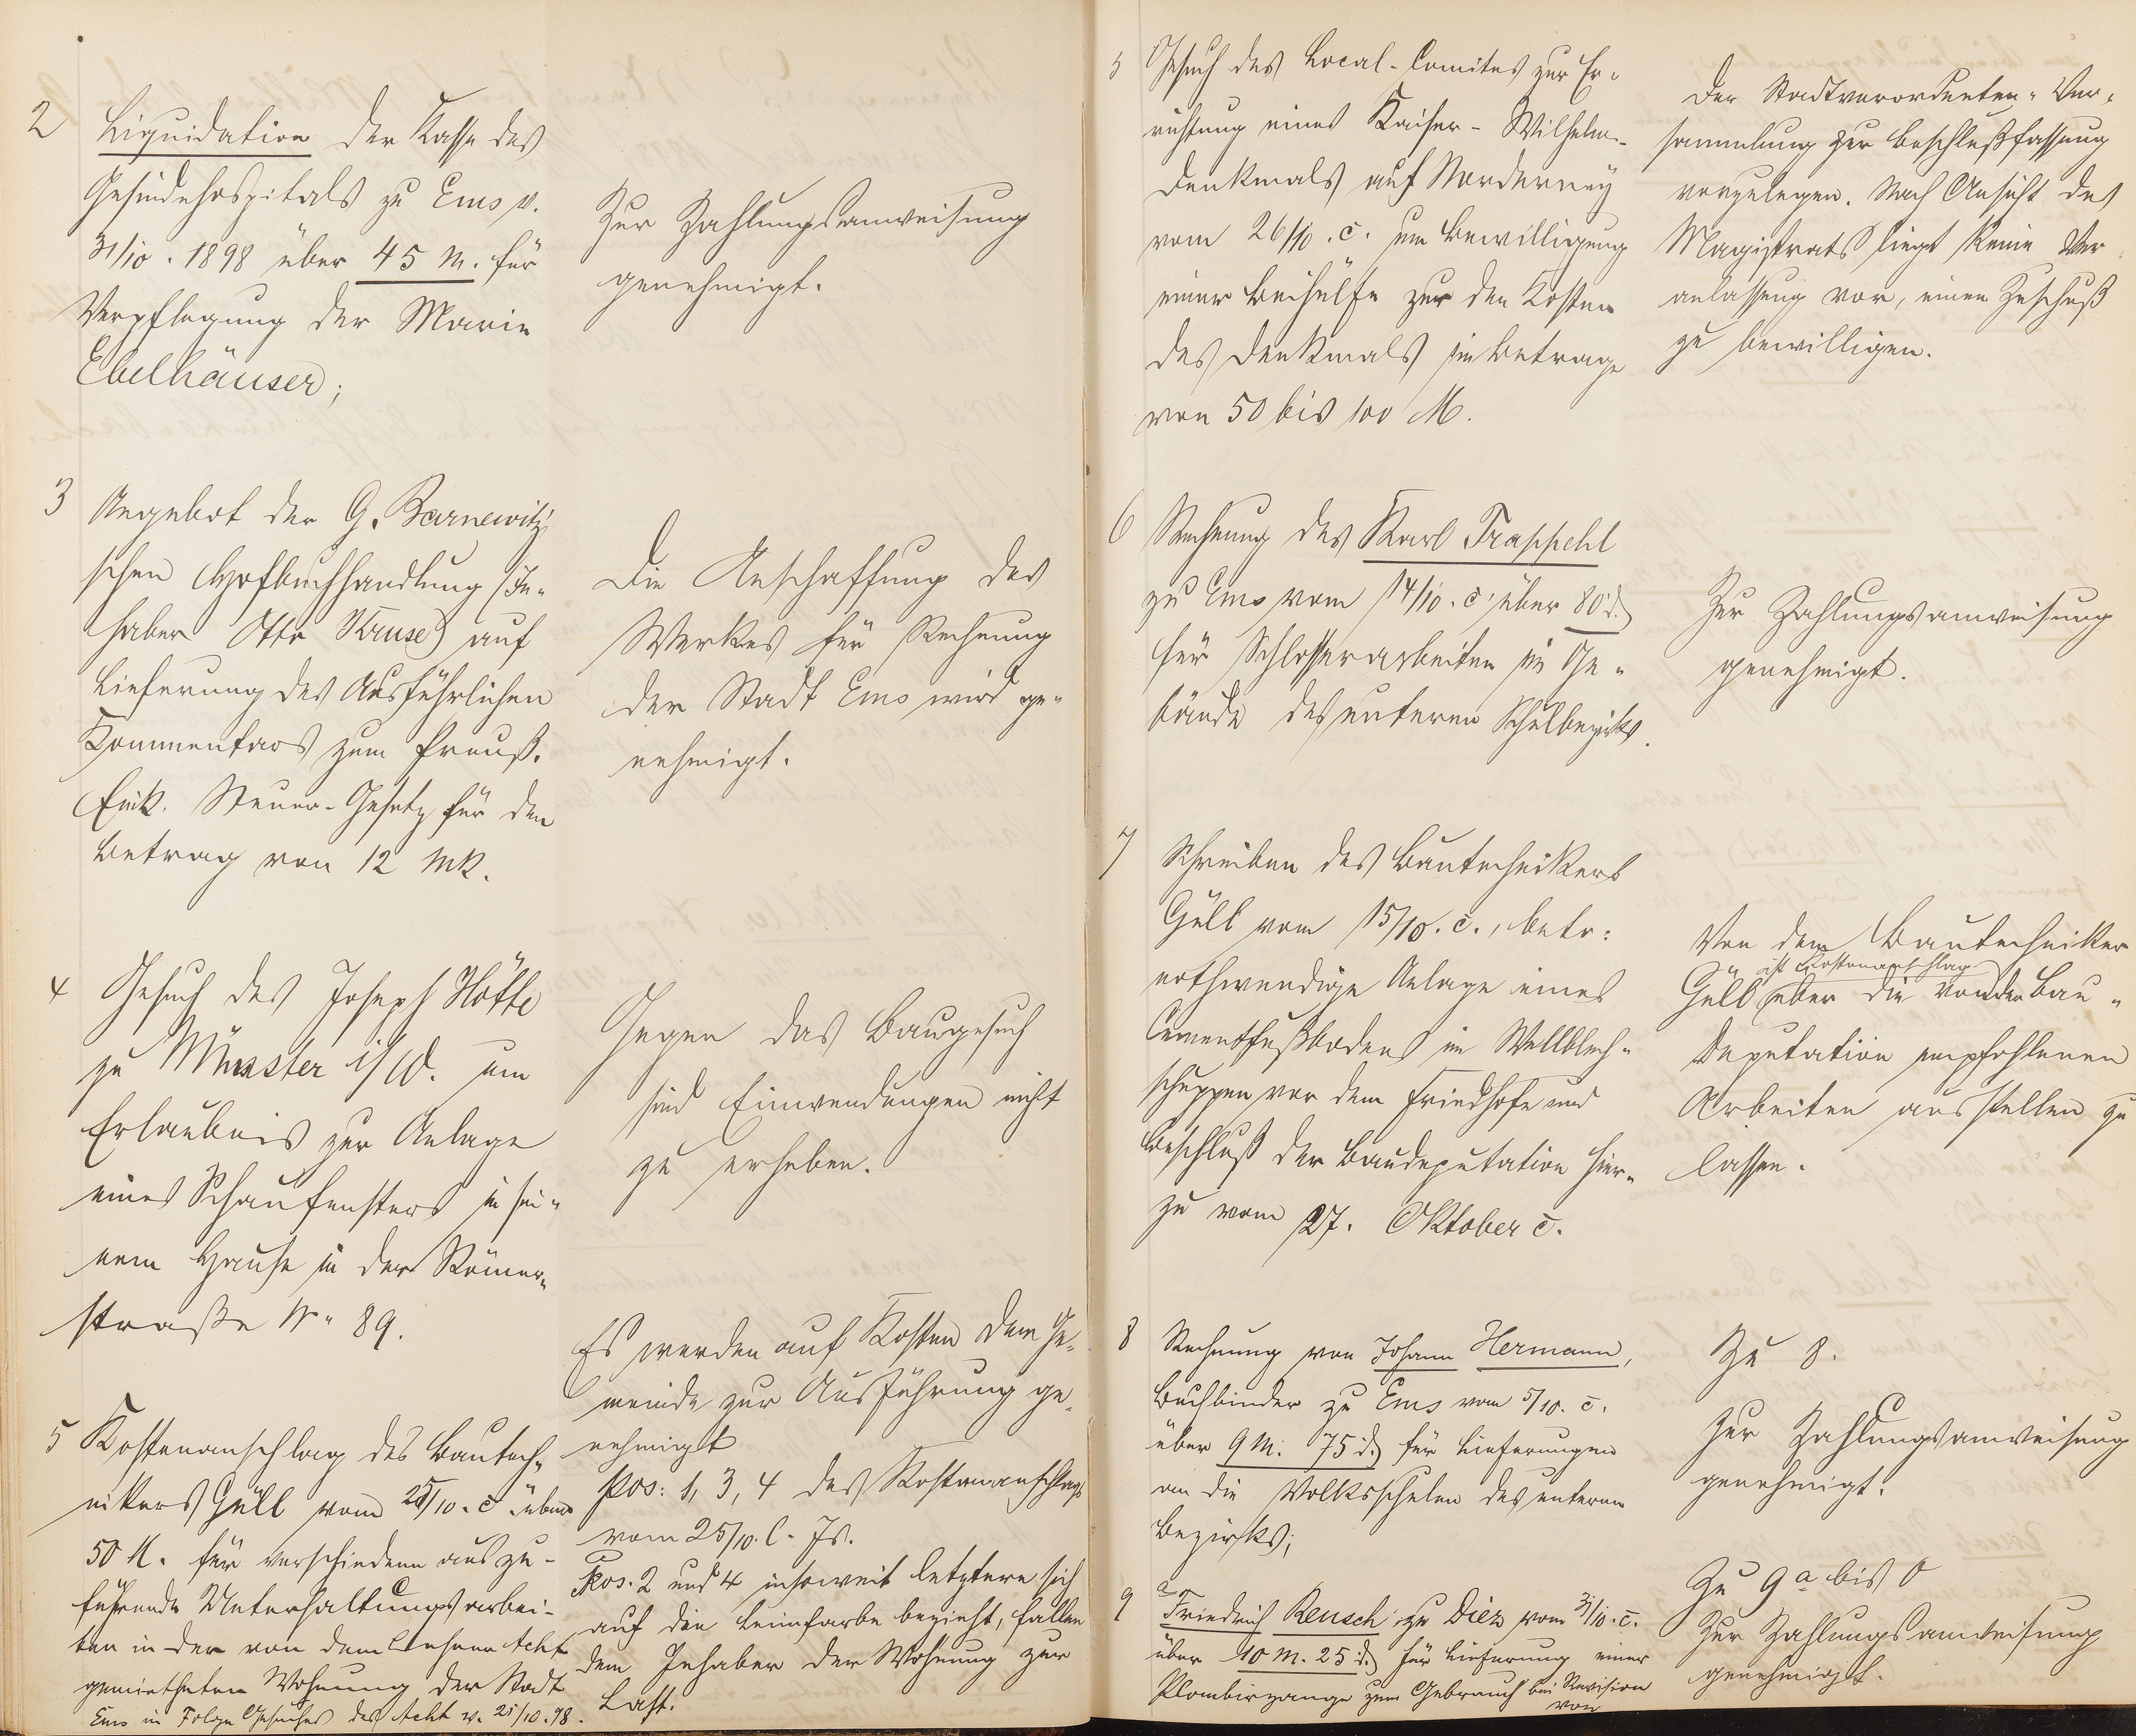 2 Liquidation der Kasse des
Gesindehospitals zu Ems v.
31/10. 1898 über 45 M. für
Verpflegung der Marie
Ebelhäuser;
Zur Zahlungsanweisung
genehmigt.
3 Angebot der G. Barnewitz
schen Hofbuchhandlung (In-
haber Otto Kruse) auf
Lieferung des Ausführlichen
Kommentars zum Preuß.
Eink. Steuer-Gesetz für den
Betrag von 12 Mk.
Die Anschaffung des
Werkes für Rechnung
der Stadt Ems wird ge-
nehmigt.
4 Gesuch des Joseph Hötte
zu Münster i/W. um
Erlaubnis zur Anlage
eines Schaufensters in sei-
nem Hause in der Römer-
straße Nr. 89.
Gegen das Baugesuch
sind Einwendungen nicht
zu erheben.
5 Kostenanschlag des Bautech-
nikers Güll vom 25/10. c. über
50 M. für verschiedene auszu-
führende Unterhaltungsarbei-
ten in der von dem Lehrer Acht
gemietheten Wohnung der Stadt
Ems in Folge Gesuches des Acht v. 21/10.98.
Es werden auf Kosten der Ge-
meinde zur Ausführung ge-
nehmigt
Pos: 1, 3, 4 des Kostenanschlags
vom 25/10. l. Js.
Pos. 2 und 4 insoweit letztere sich
auf die Leimfarbe bezieht, fallen
dem Inhaber der Wohnung zur
Last.
5 Gesuch des Local-Comites zur Er-
richtung eines Kaiser-Wilhelm-
Denkmals auf Norderney
vom 26/10. c. um Bewilligung
einer Beihülfe zu den Kosten
des Denkmals im Betrage
von 50 bis 100 M.
Der Stadtverordneten-Ver-
sammlung zur Beschlußfassung
vorzulegen. Nach Ansicht des
Magistrats liegt keine Ver-
anlassung vor, einen Zuschuß
zu bewilligen.
6 Rechnung des Karl Trappehl
zu Ems vom 14/10. c. über 80 d.
für Schlosserarbeiten im Ge-
bäude des unteren Schulbezirks.
Zur Zahlungsanweisung
genehmigt.
7 Schreiben des Bautechnikers
Güll vom 15/10. c., betr:
nothwendige Anlage eines
Cementfußbodens im Wellblech-
schuppen vor dem Friedhofe und
Beschluß der Baudeputation hier-
zu vom 27. Oktober c.
Von dem Bautechniker
ist Kostenanschlag
Güll über die von der Bau-
deputation empfohlenen
Arbeiten aufstellen zu
lassen.
8 Rechnung von Johann Hermann,
Buchbinder zu Ems vom 5/10. c.
über 9 M. 75 d. für Lieferungen
an die Volksschulen des unteren
Bezirks;
Zu 8.
Zur Zahlungsanweisung
genehmigt.
9 a Friedrich Reusch zu Diez vom 31/10. c.
über 10 M. 25 d. für Lieferung einer
Plombirzange zum Gebrauch bei Revision
von
Zu 9 a bis o
Zur Zahlungsanweisung
genehmigt.